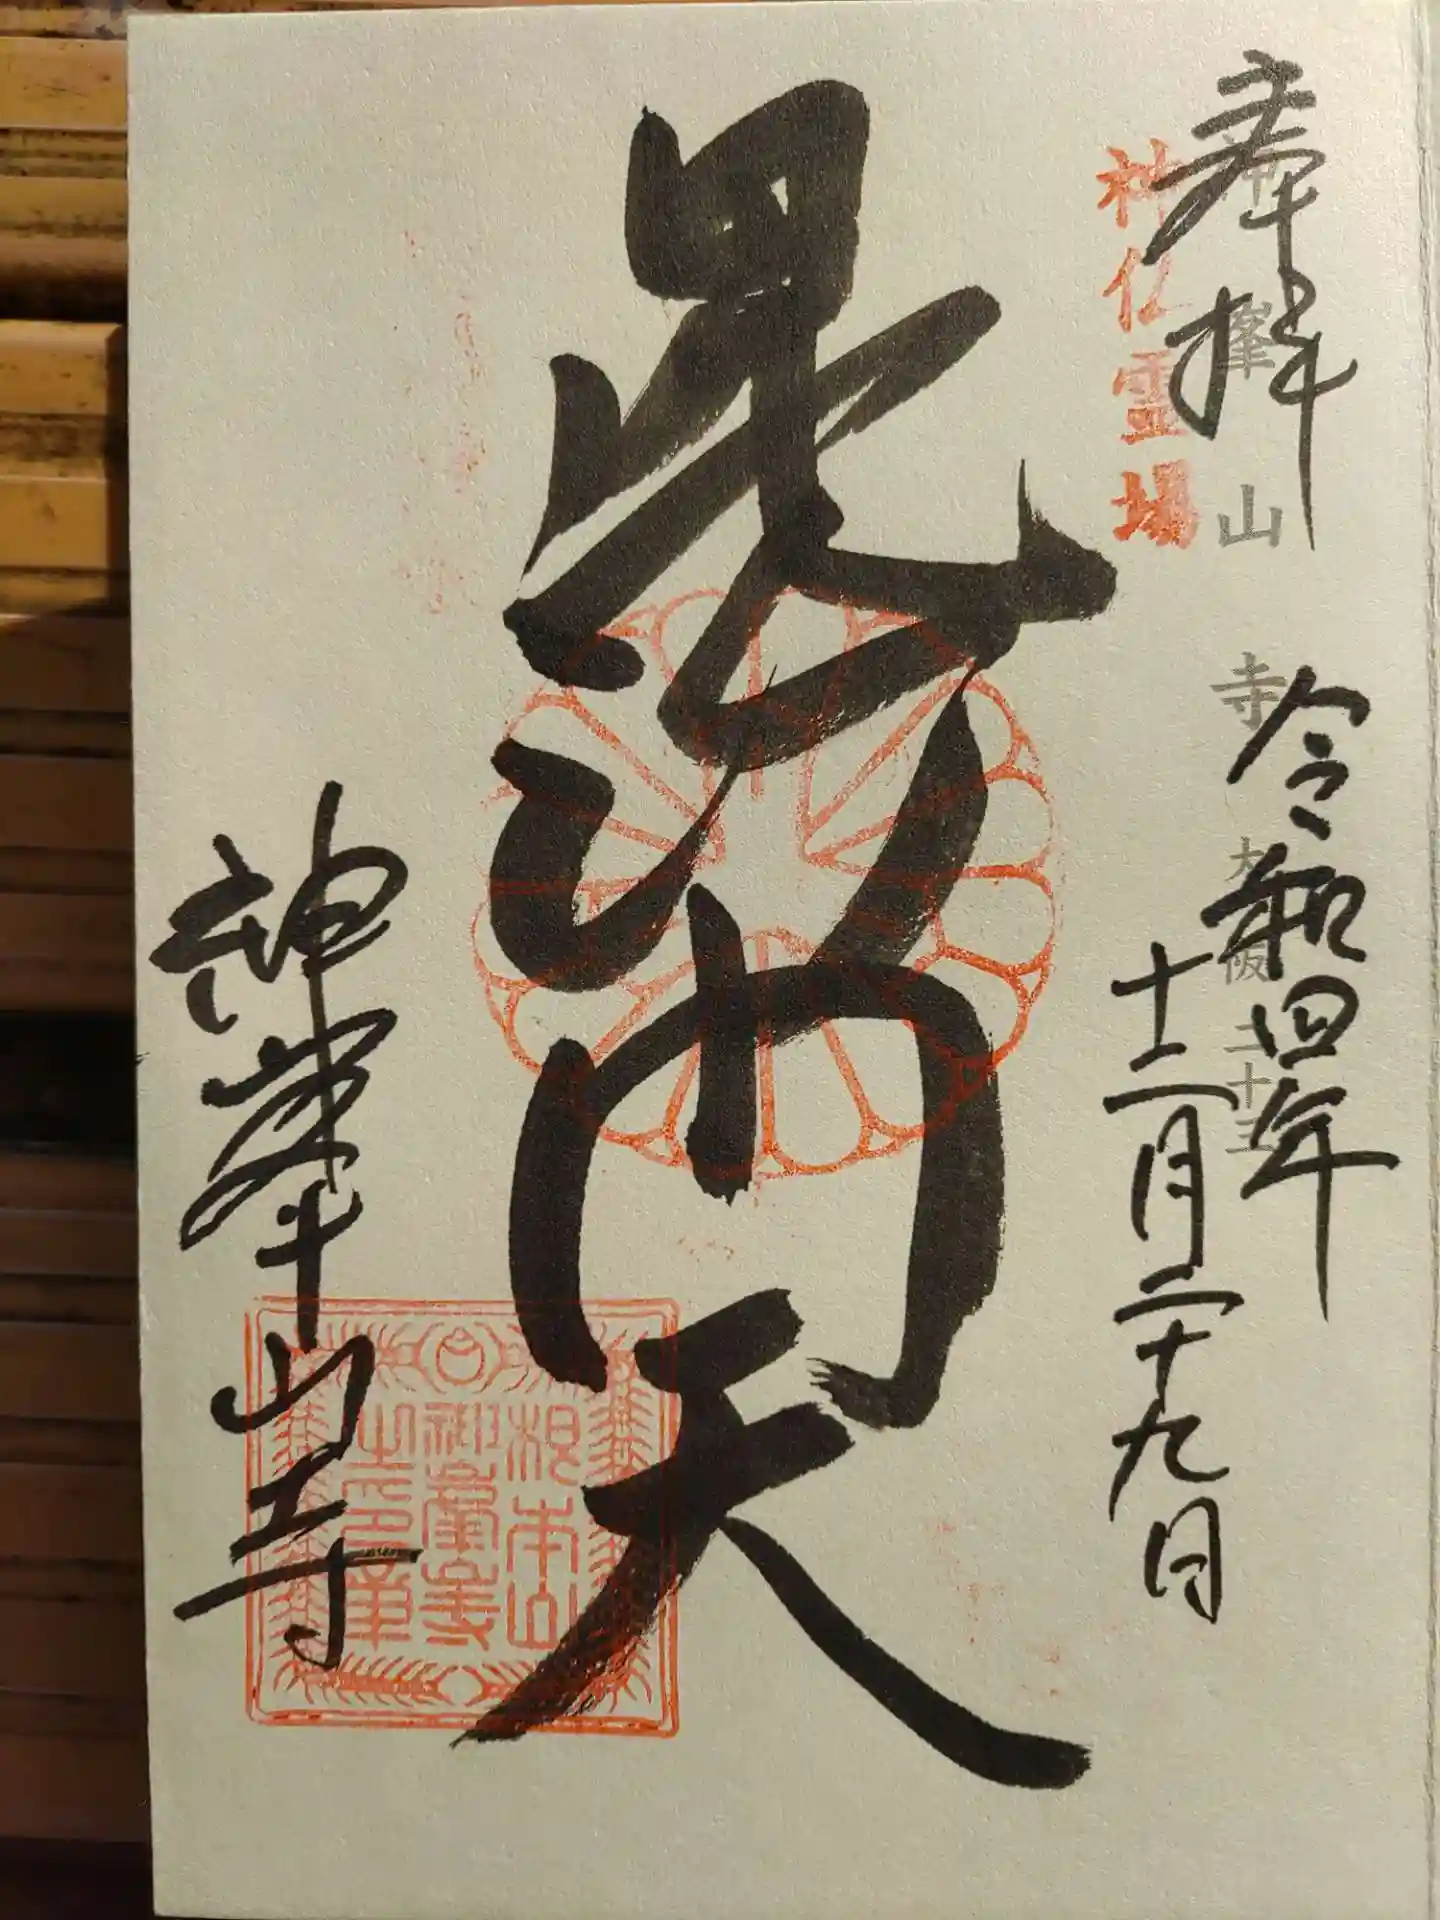 奉拝
神峯山寺 大阪二十三
令和四年
神仏霊場
十二月二十九日
毘沙門天
神峯山寺
根本山
神峯寺
之印章